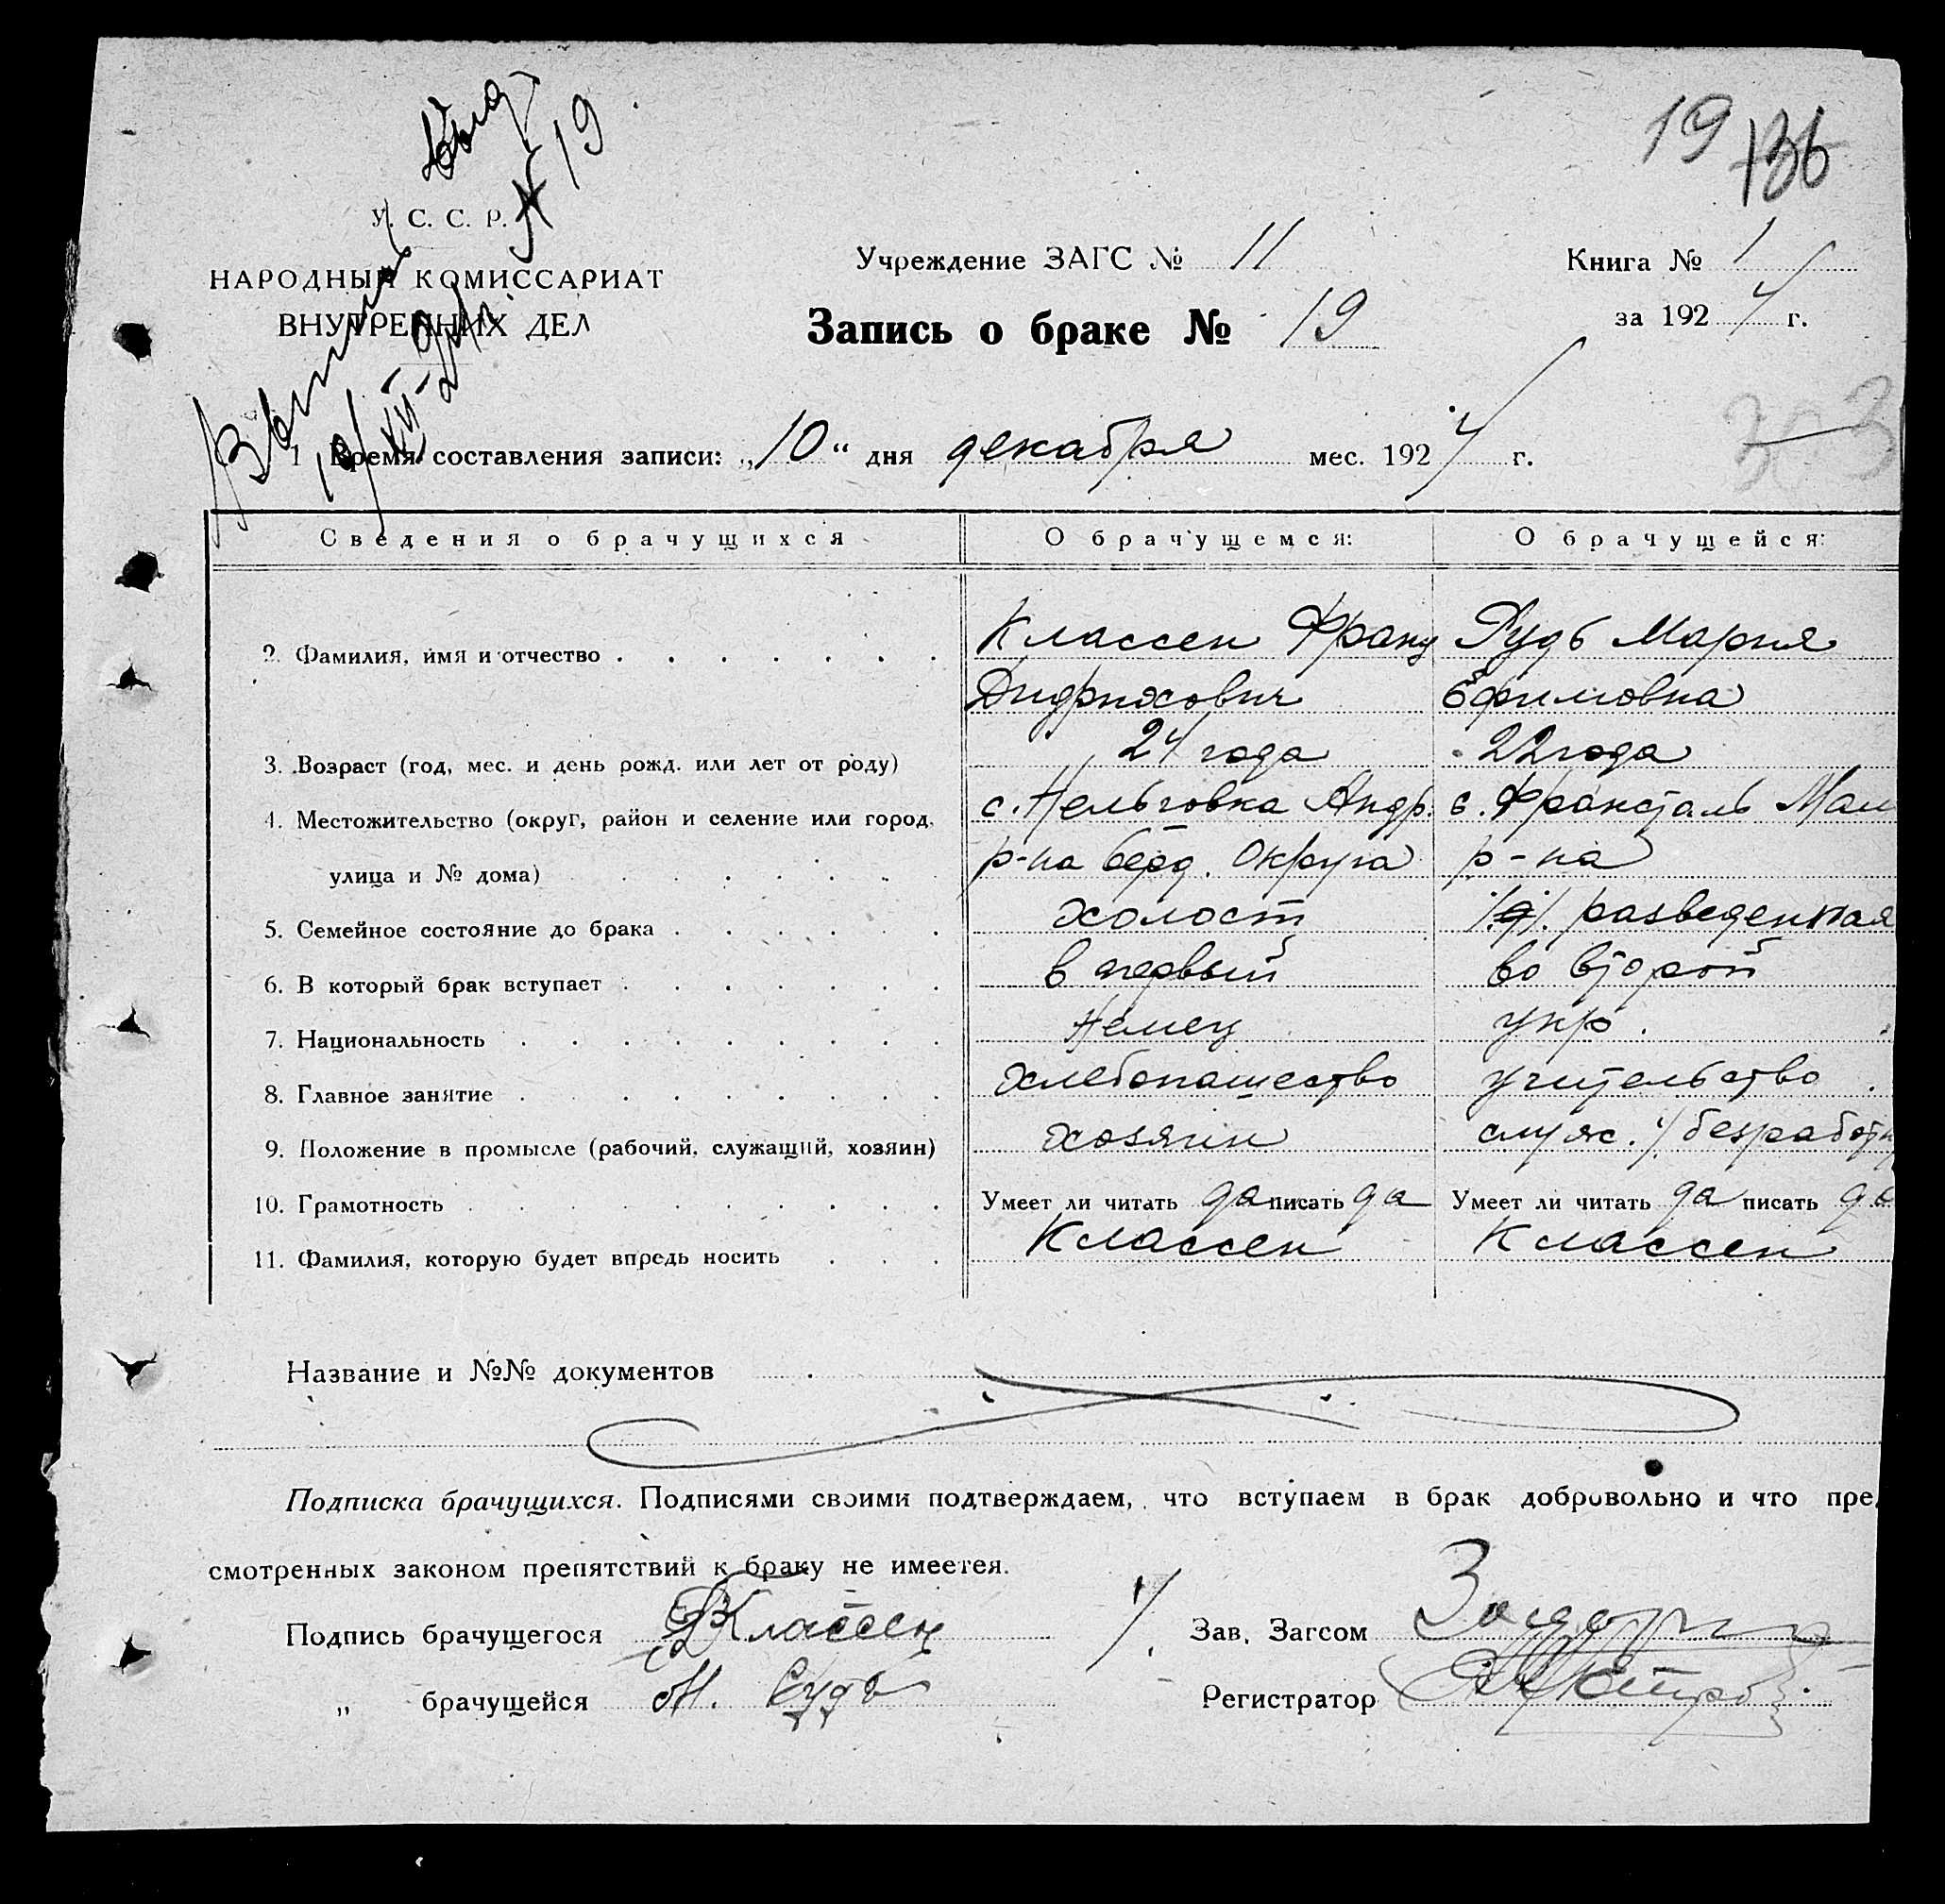 19 136
У. С. С. Р.
№ 19
НАРОДНЫЙ КОМИССАРИАТ
ВНУТРЕННИХ ДЕЛ
Учреждение ЗАГС № 11
Книга № 1
за 1924 г.
Запись о браке № 19
303
10/XII-24
1 Время составления записи: „10“ дня декабря мес. 1924 г.
Сведения о брачущихся О брачущемся: О брачущейся:
2. Фамилия, имя и отчество Классен Франц Рудь Мария
Дидрихович Ефимовна
3. Возраст (год, мес. и день рожд. или лет от роду) 24 года 22 года
4. Местожительство (округ, район и селение или город, с. Нельговка Андр. с. Франсталь Мол
улица и № дома) р-на Берд. Округа р-на
5. Семейное состояние до брака холост разведенная
6. В который брак вступает в первый во второй
7. Национальность Немец укр.
8. Главное занятие хлебопашество учительство
9. Положение в промысле (рабочий, служащий, хозяин) хозяин служ. безработн
10. Грамотность Умеет ли читать да писать да Умеет ли читать да писать да
11. Фамилия, которую будет впредь носить Классен Классен
Название и №№ документов
Подписка брачущихся. Подписями своими подтверждаем, что вступаем в брак добровольно и что пред
смотренных законом препятствий к браку не имеется.
Подпись брачущегося Классен Зав. Загсом
„ брачущейся М. Рудь Регистратор